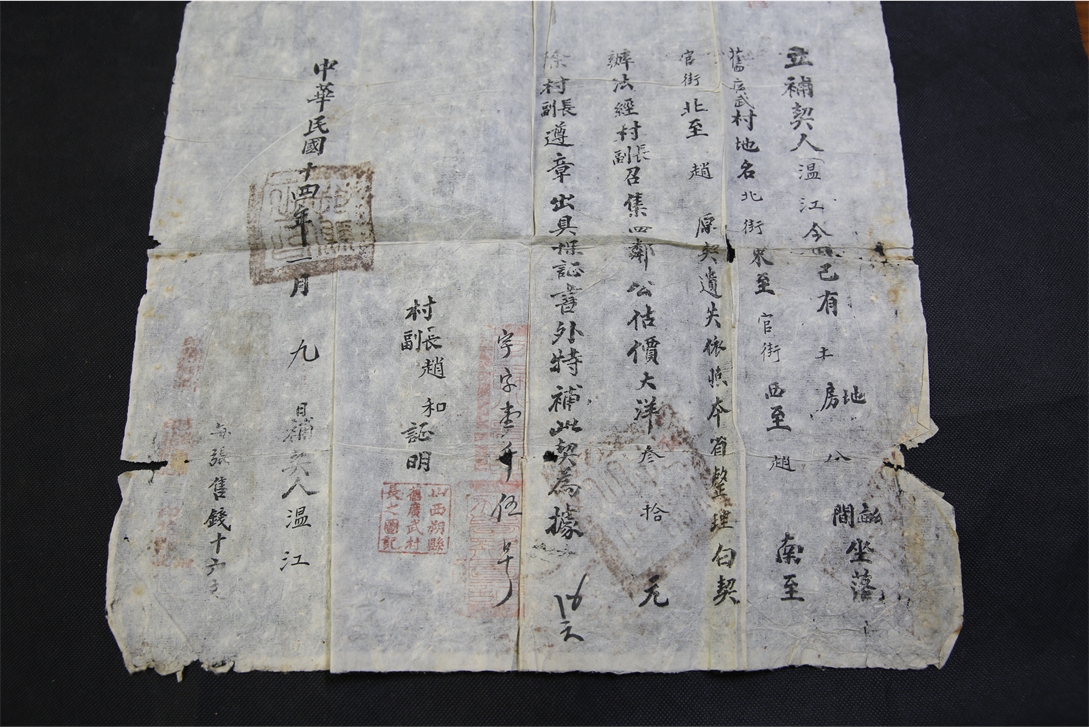 立補契人溫江今將已有土房地八間畝坐落
舊広武村地名北街東至官街西至趙南至
官街北至趙原契遺失依照本省整理白契
辦法經村長副召集四鄰公估價大洋叁拾元
除村長副遵章出具保証書外特補此契為據
字字壹千伍
村長副趙和証明
山西朔縣
舊廣武村
長之圖記
中華民國十四年十二月九日補契人溫江
每張售錢十